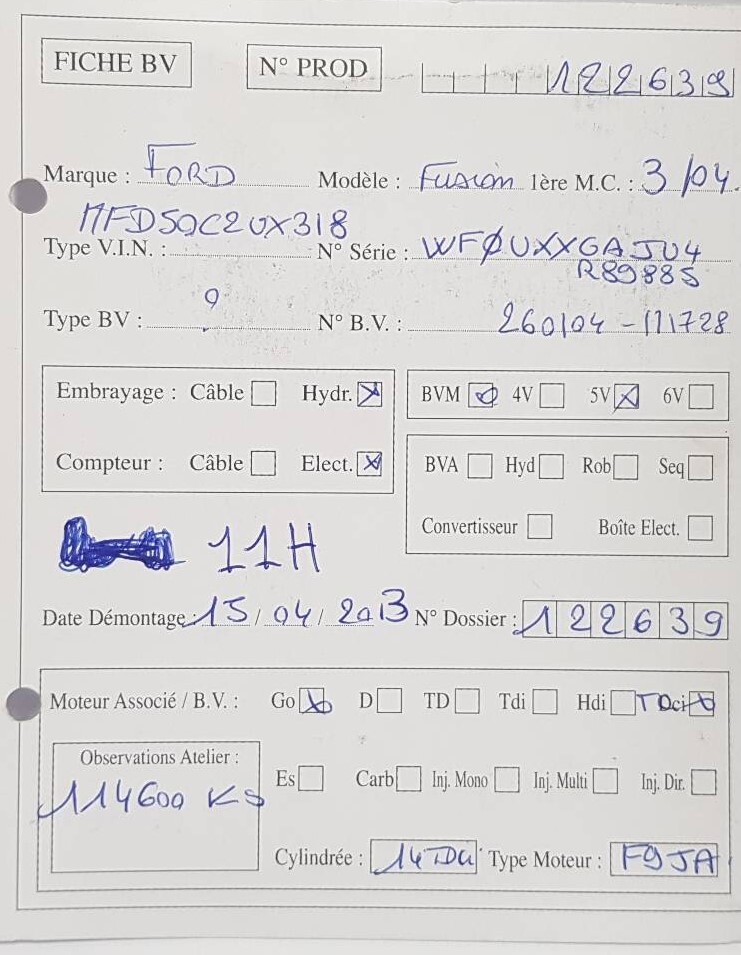 FICHE BV N° PROD 122639
Marque : FORD Modèle : Fusion 1ère M.C. : 3/04.
MFD5OC2UX318
Type V.I.N. : N° Série : WFØUXXGAJU4
R89885
Type BV : ? N° B.V. : 260104-111728
Embrayage : Câble Hydr. BVM 4V 5V 6V
Compteur : Câble Elect. BVA Hyd Rob Seq
Convertisseur Boîte Elect.
11H
Date Démontage : 15 / 04 / 2013 N° Dossier : 122639
Moteur Associé / B.V. : Go D TD Tdi Hdi TDci
Observations Atelier :
Es Carb Inj. Mono Inj. Multi Inj. Dir.
114600 KS
Cylindrée : 14 TDci Type Moteur : F9JA